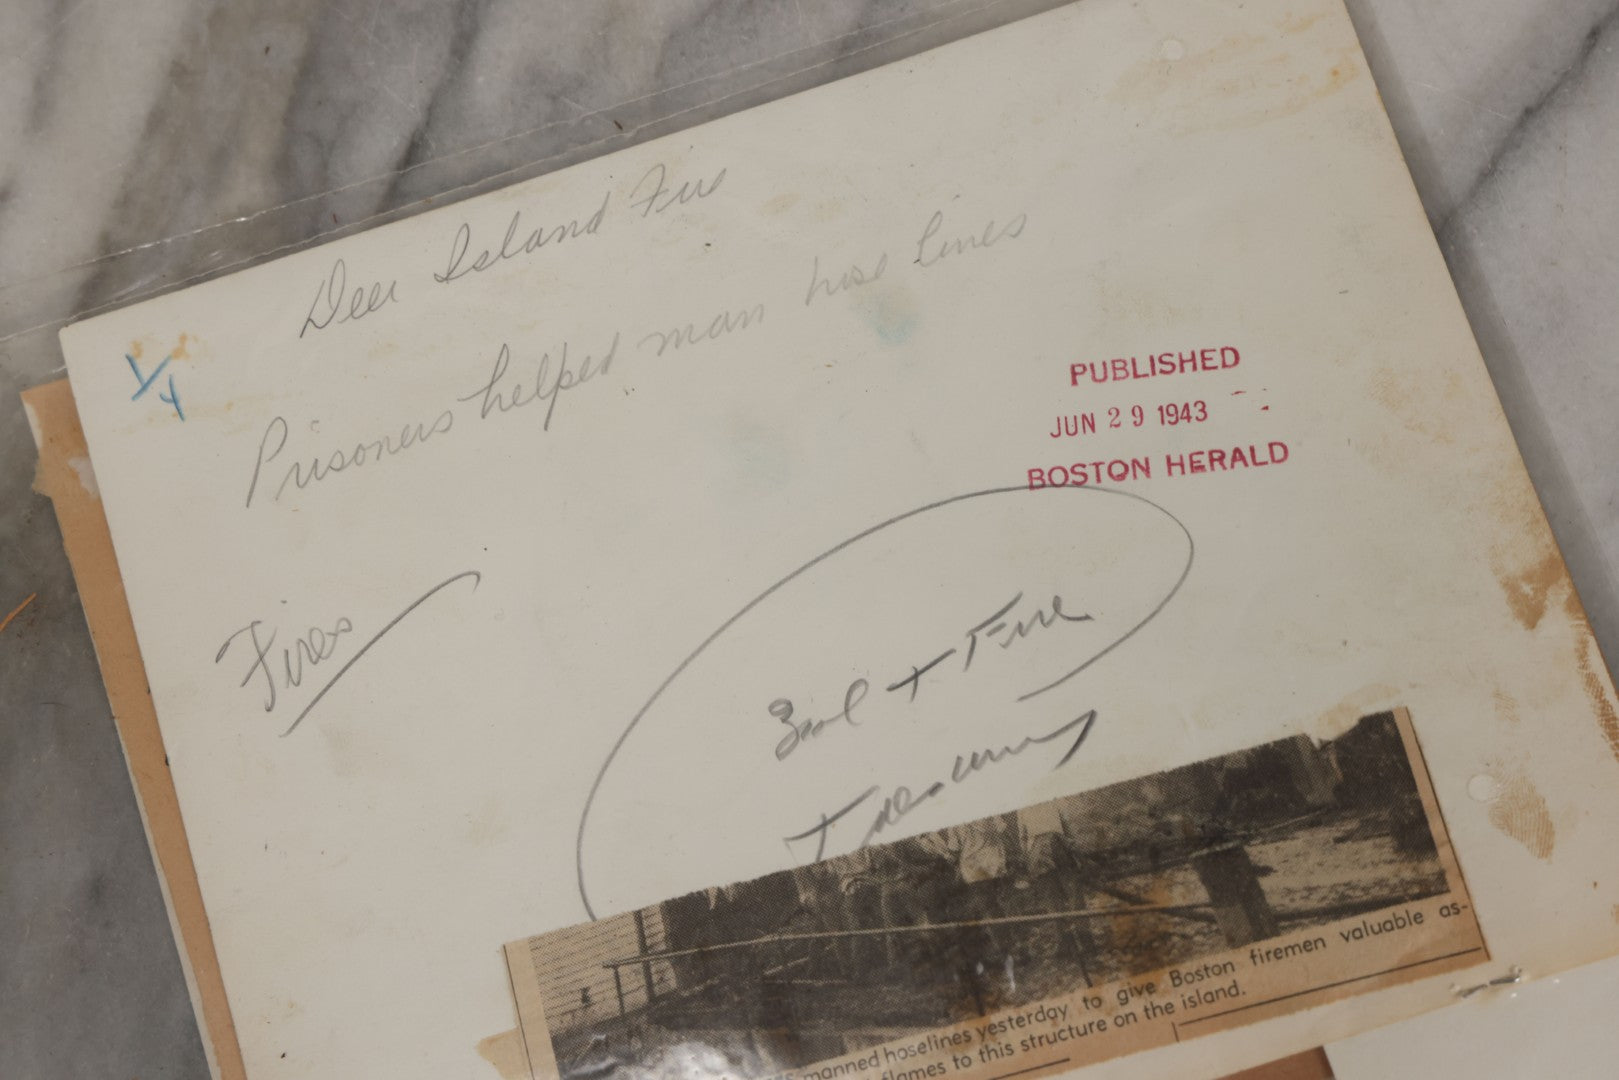 Deer Island Fire
Prisoners helped man hose lines
1/4
PUBLISHED
JUN 29 1943
BOSTON HERALD
Fires
+ Fire
manned hoselines yesterday to give Boston firemen valuable as-
flames to this structure on the island.